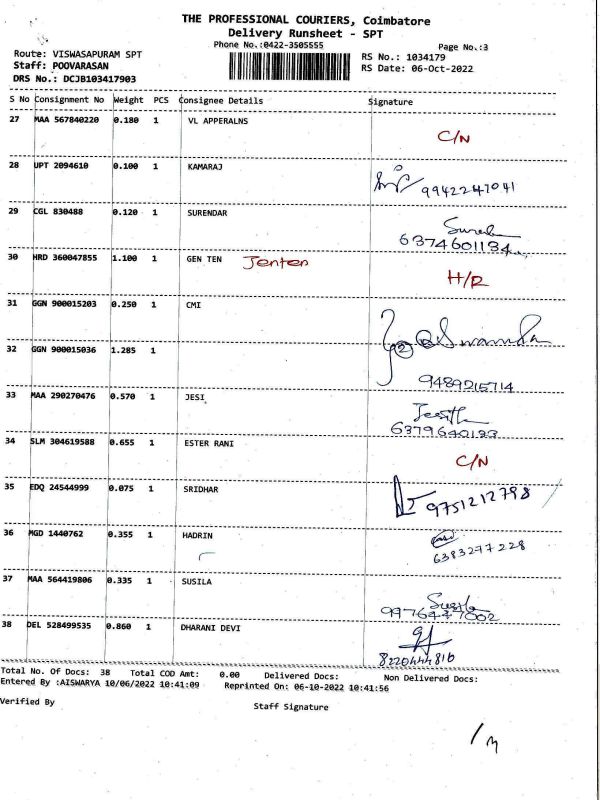 THE PROFESSIONAL COURIERS, Coimbatore
Delivery Runsheet - SPT
Phone No.:0422-3505555
Page No.:3
Route: VISWASAPURAM SPT
RS No.: 1034179
Staff: POOVARASAN
RS Date: 06-Oct-2022
DRS No.: DCJB103417903
S No Consignment No Weight PCS Consignee Details Signature
27 MAA 567840220 0.180 1 VL APPERALNS C/N
28 UPT 2094610 0.100 1 KAMARAJ 9942247041
29 CGL 830488 0.120 1 SURENDAR
6374601134
30 HRD 360047855 1.100 1 GEN TEN Jenten H/R
31 GGN 900015203 0.250 1 CMI
32 GGN 900015036 1.285 1 2
9489215714
33 MAA 290270476 0.570 1 JESI
6379640133
34 SLM 304619588 0.655 1 ESTER RANI C/N
35 EDQ 24544999 0.075 1 SRIDHAR 9751212798
36 MGD 1440762 0.355 1 HADRIN
6383277228
37 MAA 564419806 0.335 1 SUSILA
38 DEL 528499535 0.860 1 DHARANI DEVI
Total No. Of Docs: 38 Total COD Amt: 0.00 Delivered Docs: Non Delivered Docs:
Entered By :AISWARYA 10/06/2022 10:41:09 Reprinted On: 06-10-2022 10:41:56
Verified By
Staff Signature